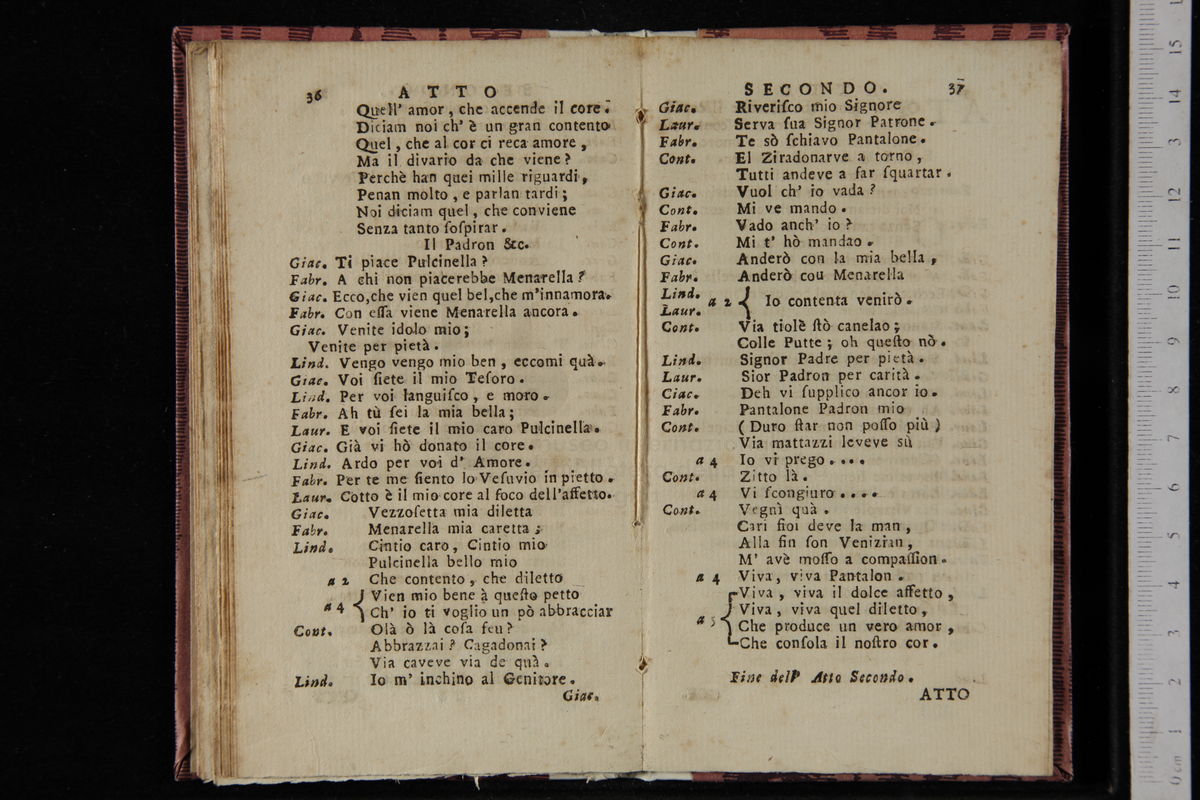 36 ATTO
Quell' amor, che accende il core.
Diciam noi ch' è un gran contento
Quel, che al cor ci reca amore,
Ma il divario da che viene?
Perchè han quei mille riguardi,
Penan molto, e parlan tardi;
Noi diciam quel, che conviene
Senza tanto soſpirar.
Il Padron &c.
Giac. Ti piace Pulcinella?
Fabr. A chi non piacerebbe Menarella?
Giac. Ecco,che vien quel bel,che m'innamora.
Fabr. Con eſſa viene Menarella ancora.
Giac. Venite idolo mio;
Venite per pietà.
Lind. Vengo vengo mio ben, eccomi quà.
Giac. Voi ſiete il mio Teſoro.
Lind. Per voi languiſco, e moro.
Fabr. Ah tù ſei la mia bella;
Laur. E voi ſiete il mio caro Pulcinella.
Giac. Già vi hò donato il core.
Lind. Ardo per voi d' Amore.
Fabr. Per te me ſiento lo Veſuvio in pietto.
Laur. Cotto è il mio core al foco dell'affetto.
Giac. Vezzoſetta mia diletta
Fabr. Menarella mia caretta;
Lind. Cintio caro, Cintio mio
Pulcinella bello mio
a 2 Che contento, che diletto
a 4 { Vien mio bene à queſto petto
Ch' io ti voglio un pò abbracciar
Cont. Olà ò là coſa feu?
Abbrazzai? Cagadonai?
Via caveve via de quà.
Lind. Io m' inchino al Genitore.
Giac.
SECONDO. 37
Giac. Riveriſco mio Signore
Laur. Serva ſua Signor Patrone.
Fabr. Te sò ſchiavo Pantalone.
Cont. El Ziradonarve a torno,
Tutti andeve a far ſquartar.
Giac. Vuol ch' io vada?
Cont. Mi ve mando.
Fabr. Vado anch' io?
Cont. Mi t' hò mandao.
Giac. Anderò con la mia bella,
Fabr. Anderò cou Menarella
Lind.
Laur. a 2 { Io contenta venirò.
Cont. Via tiolè ſtò canelao;
Colle Putte; oh queſto nò.
Lind. Signor Padre per pietà.
Laur. Sior Padron per carità.
Ciac. Deh vi ſupplico ancor io.
Fabr. Pantalone Padron mio
Cont. (Duro ſtar non poſſo più)
Via mattazzi leveve sù
a 4 Io vi prego....
Cont. Zitto là.
a 4 Vi ſcongiuro....
Cont. Vegnì quà.
Cari fioi deve la man,
Alla fin ſon Venizian,
M' avè moſſo a compaſſion.
a 4 Viva, viva Pantalon.
a 5 { Viva, viva il dolce affetto,
Viva, viva quel diletto,
Che produce un vero amor,
Che conſola il noſtro cor.
Fine dell' Atto Secondo.
ATTO
0 cm 1 2 3 4 5 6 7 8 9 10 11 12 13 14 15